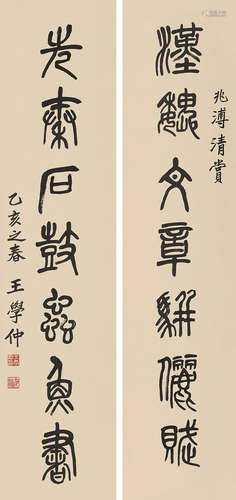 兆溥清賞
漢魏文章駢儷賦
先秦石鼓蟲魚書
乙亥之春 王學仲